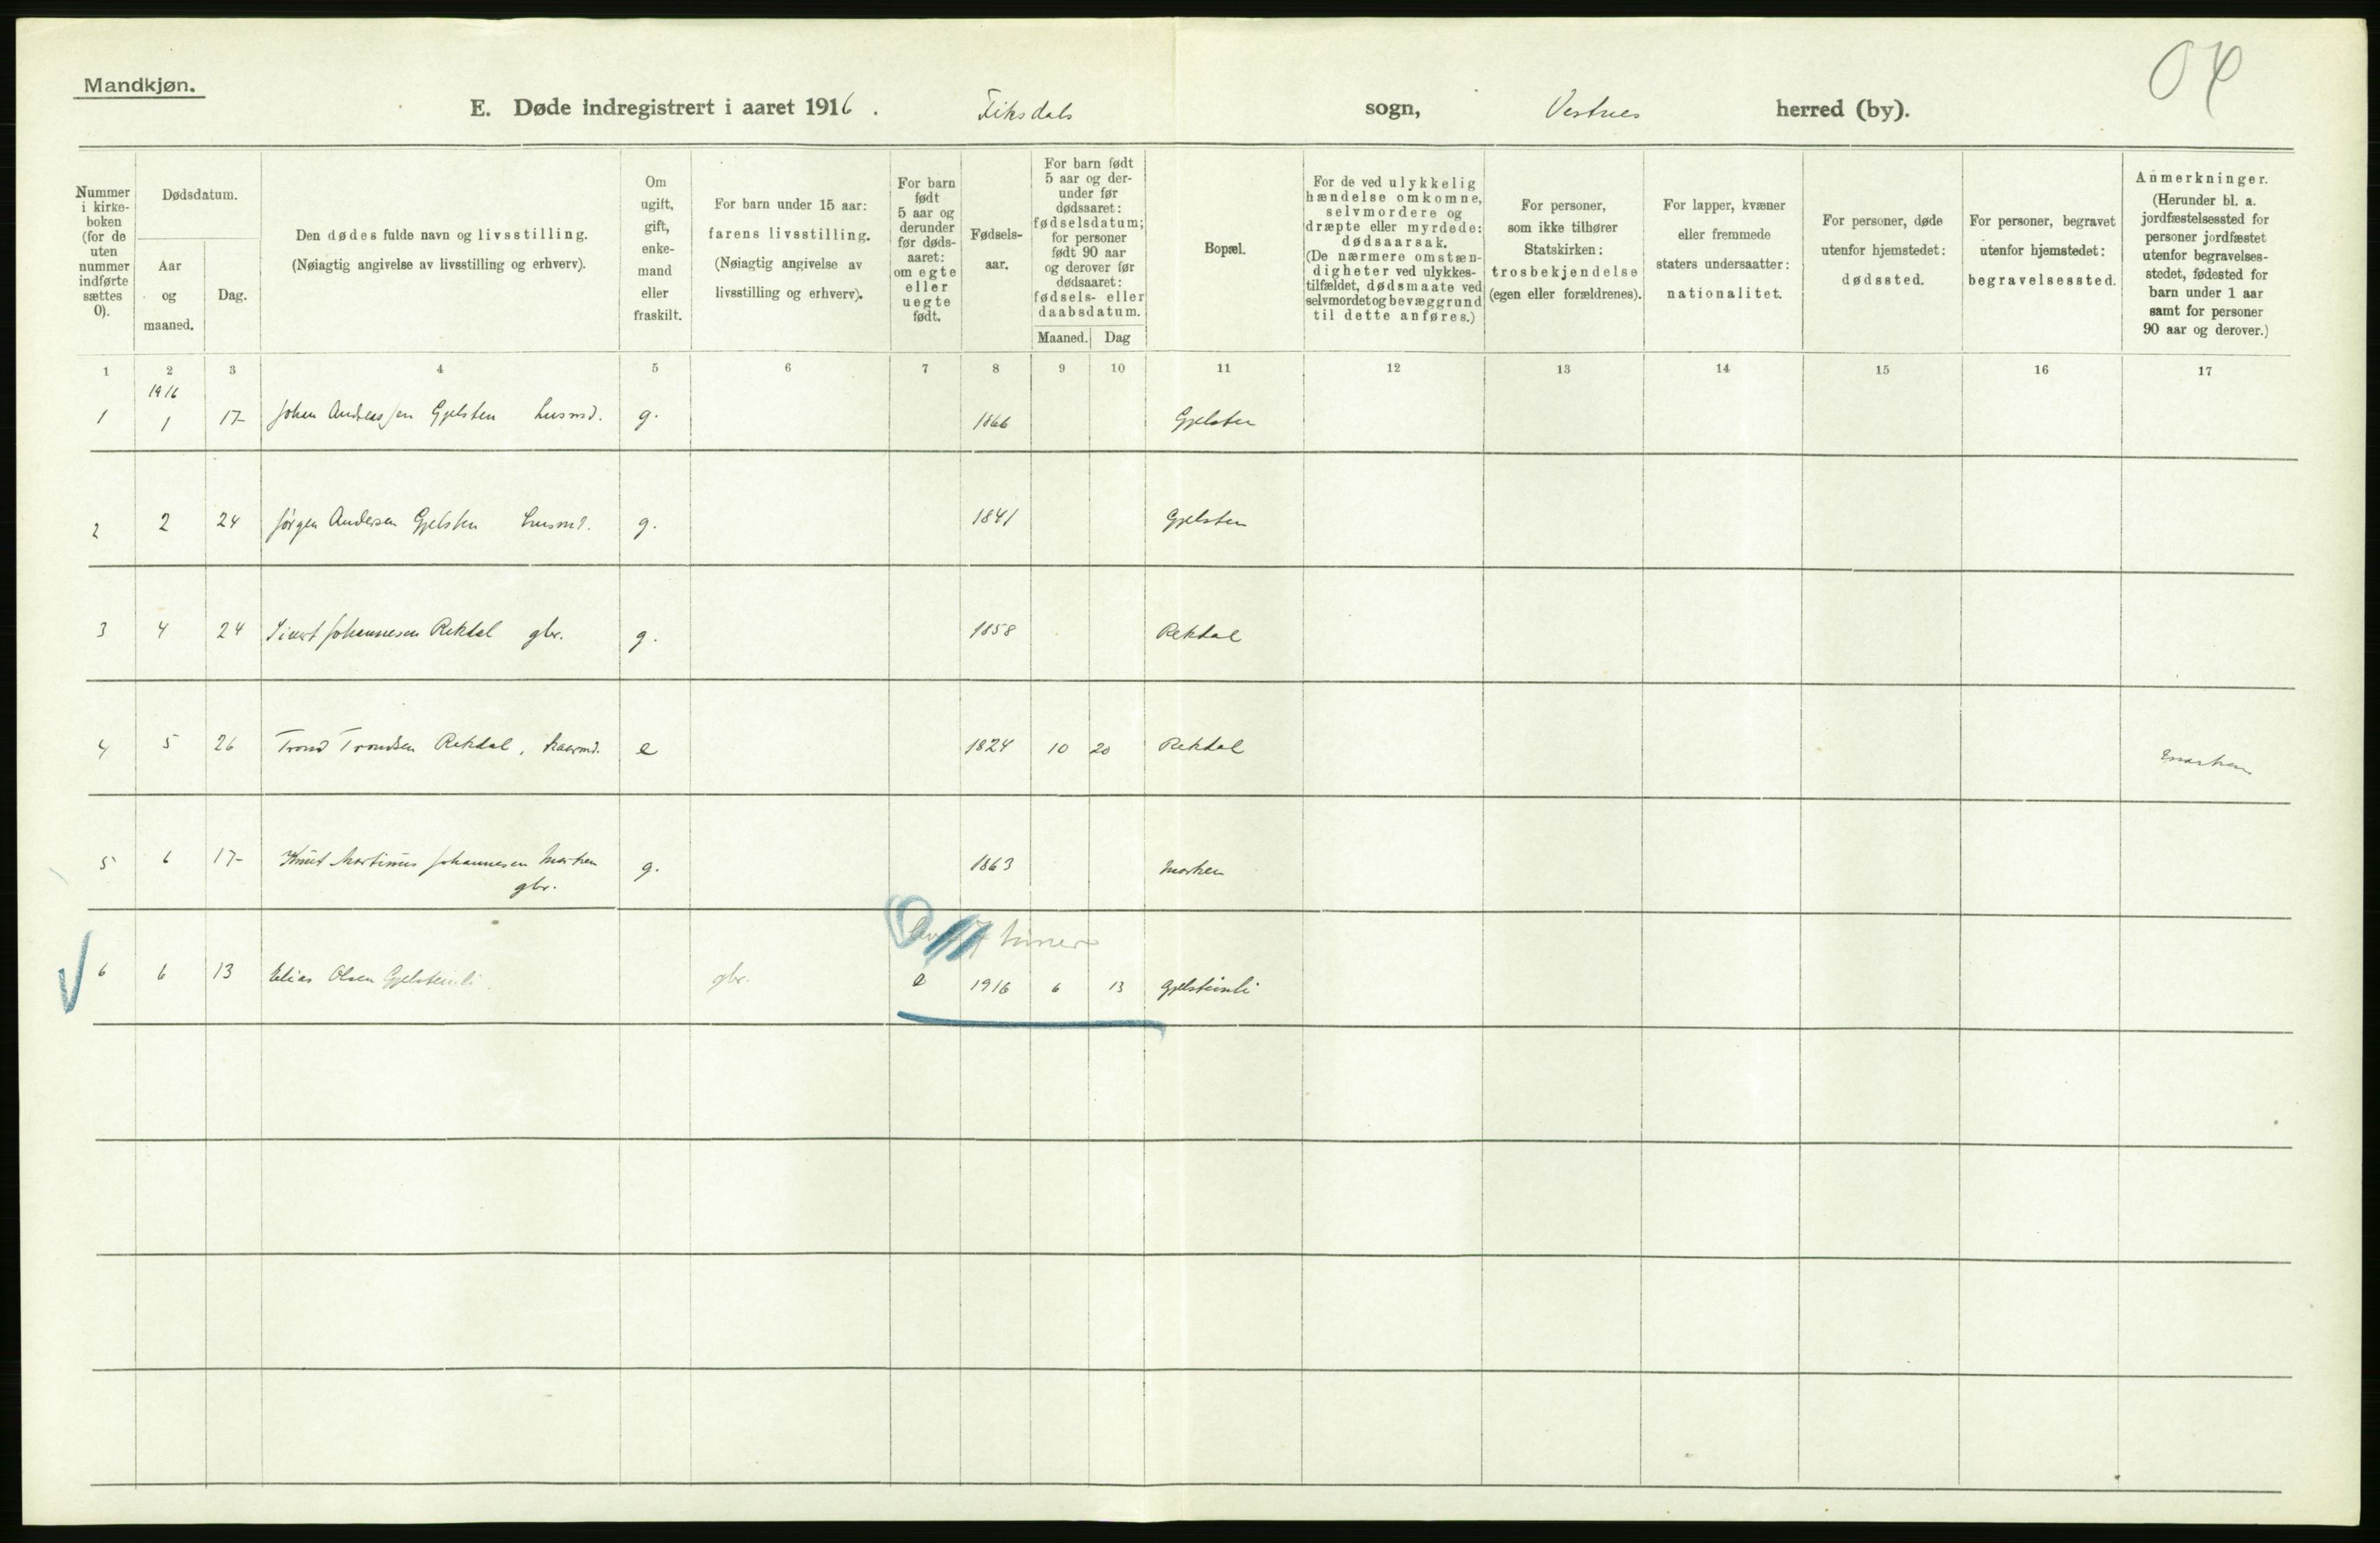 Mandkjøn.
04
E. Døde indregistrert i aaret 1916. Fiksdals sogn, Vestnes herred (by).
Nummer i kirke-boken (for de uten nummer indførte sættes 0).
Dødsdatum.
Aar og maaned.
Dag.
Den dødes fulde navn og livsstilling.
(Nøiagtig angivelse av livsstilling og erhverv).
Om ugift, gift, enke-mand eller fraskilt.
For barn under 15 aar: farens livsstilling.
(Nøiagtig angivelse av livsstilling og erhverv).
For barn født 5 aar og derunder før døds-aaret: om egte eller uegte født.
Fødsels-aar.
For barn født 5 aar og der-under før dødsaaret: fødselsdatum; for personer født 90 aar og derover før dødsaaret: fødsels- eller daabsdatum.
Maaned. Dag
Bopæl.
For de ved ulykkelig hændelse omkomne, selvmordere og dræpte eller myrdede: dødsaarsak.
(De nærmere omstæn-digheter ved ulykkes-tilfældet, dødsmaate ved selvmordet og bevæggrund til dette anføres.)
For personer, som ikke tilhører Statskirken: trosbekjendelse (egen eller forældrenes).
For lapper, kvæner eller fremmede staters undersaatter: nationalitet.
For personer, døde utenfor hjemstedet: dødssted.
For personer, begravet utenfor hjemstedet: begravelsessted.
Anmerkninger.
(Herunder bl. a. jordfæstelsessted for personer jordfæstet utenfor begravelses-stedet, fødested for barn under 1 aar samt for personer 90 aar og derover.)
1 2 3 4 5 6 7 8 9 10 11 12 13 14 15 16 17
1916
1 1 17 Johan Andreassen Gjelsten husmd. g. 1866 Gjelsten
2 2 24 Jörgen Andersen Gjelsten husmd. g. 1841 Gjelsten
3 4 24 Sivert Johannesen Rekdal gbr. g. 1858 Rekdal
4 5 26 Trond Trondsen Rekdal, kaarmd. e 1824 10 20 Rekdal
5 6 17 Knut Martinus Johannesen Morken g. 1863 Morken
gbr.
timer
6 6 13 Elias Olsen Gjelsteinli gbr. e 1916 6 13 Gjelsteinli